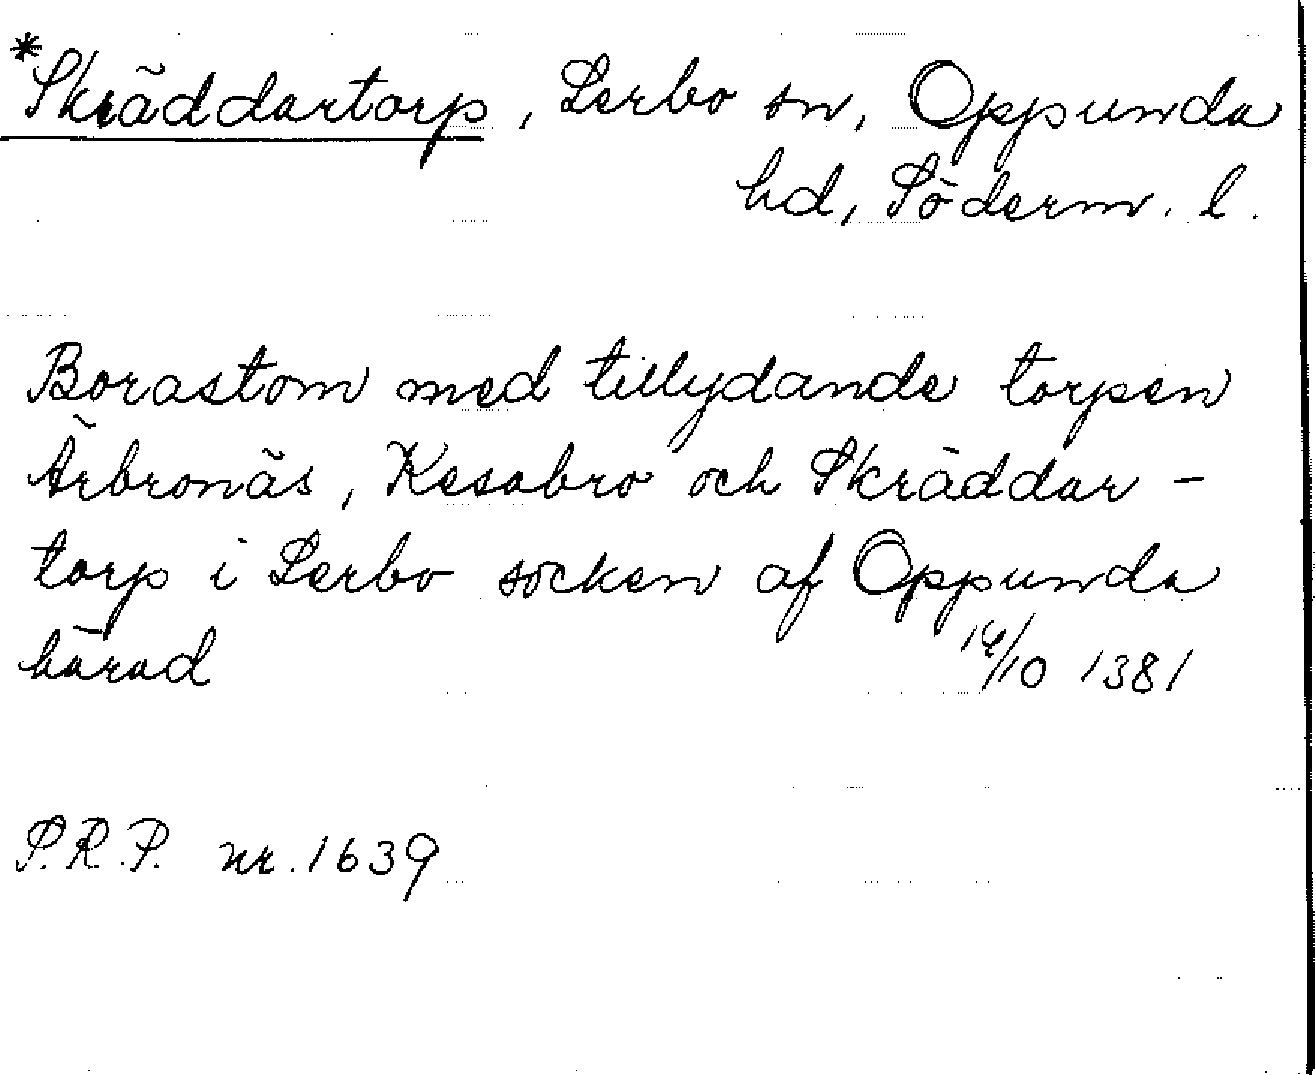 *Skräddartorp, Lerbo sn, Oppunda
hd, Söderm. l.
Borastom med tillydande torpen
Ärbronäs, Kesabro och Skräddar-
torp i Lerbo socken af Oppunda
härad 14/10 1381
P.R.P. nr. 1639